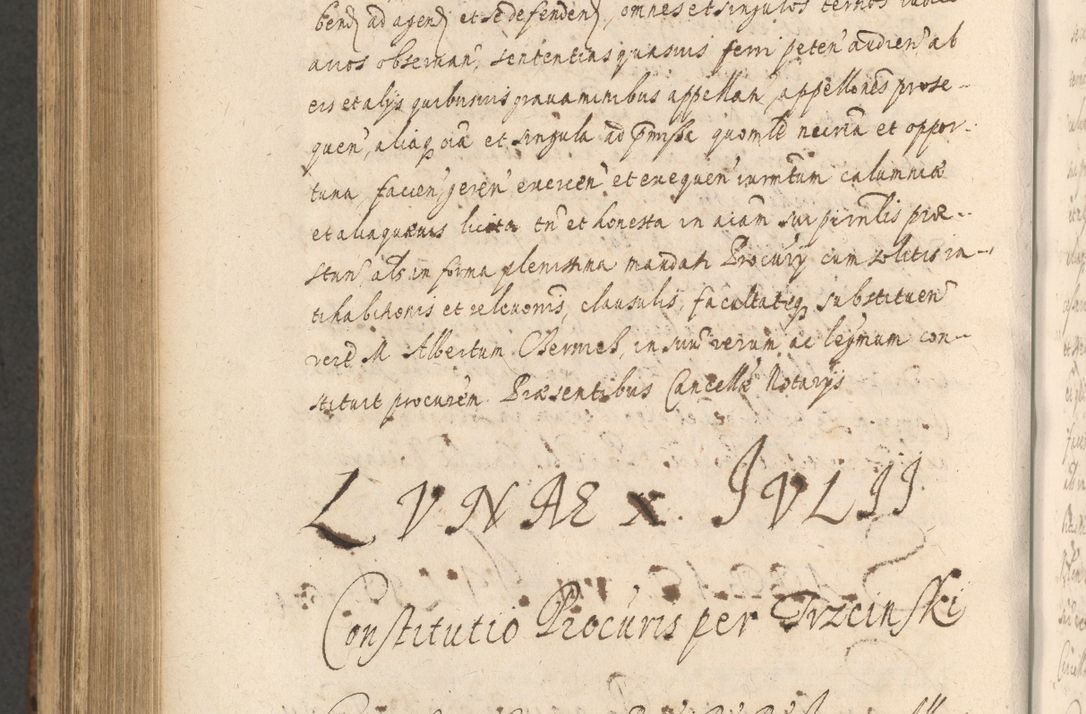 bend ad agend et se defendend, omnes et singulos
avos observan, sententias quasvis ferri peten audien ab
eis et alijs quibusvis gravaminibus appellan, appellones prose-
quen, aliaq oia et singula ad pmissa quomlt necria et oppor-
tuna facien geren exercen et exequen iurmtum calumniæ
et aliaquævis licita tn et honesta in aiam sui præ-
stan als in forma plenissima mandati Procurij cum solitis in-
tihabitionis et relevonis, clausulis, facultateq substituen
vend M Albertum in suum verum ac legmum con-
stituit procuren. Præsentibus Cancellæ Notarijs
LVNAE X. JVLII
Constitutio Procuris per Trzcinski